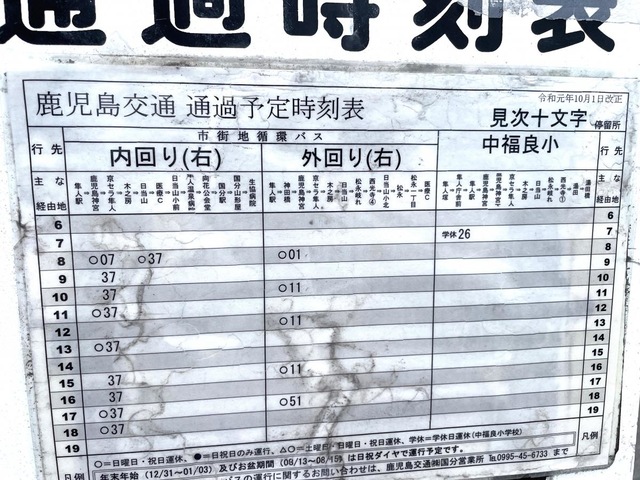 通過時刻表
鹿児島交通 通過予定時刻表
令和元年10月1日改正
見次十文字 停留所
行先 市街地循環バス 行先
内回り(右) 外回り(右) 中福良小
主な経由地 主な経由地
隼人駅 鹿児島神宮 京セラ隼人 木之房 日当山 医療C 日当山小前 隼人温泉病院 向花公会堂 国分駅 国分山形屋 生協病院
隼人駅 神田橋 京セラ隼人 木之房 日当山 松永岐れ 西光寺④ 日当山小北 松永 松永一丁目 医療C
隼人塚 隼人庁舎前 隼人駅 鹿児島神宮 京セラ隼人 木之房 日当山 松永岐れ 西光寺①
6 6
7 学休26 7
8 ○07 ○37 ○01 8
9 37 9
10 37 ○11 10
11 ○37 11
12 ○11 12
13 ○37 13
14 14
15 37 ○11 15
16 37 16
17 ○37 ○51 17
18 ○37 18
19 19
凡例 ○=日曜日・祝日運休、●=日祝日のみ運行、△○=土曜日・日曜日・祝日運休、学休=学休日運休(中福良小学校) 凡例
年末年始(12/31〜01/03)及びお盆期間(08/13〜08/15)は日祝ダイヤで運行予定です。
バスの運行に関するお問い合わせは、鹿児島交通㈱国分営業所 ℡0995-45-6733 まで